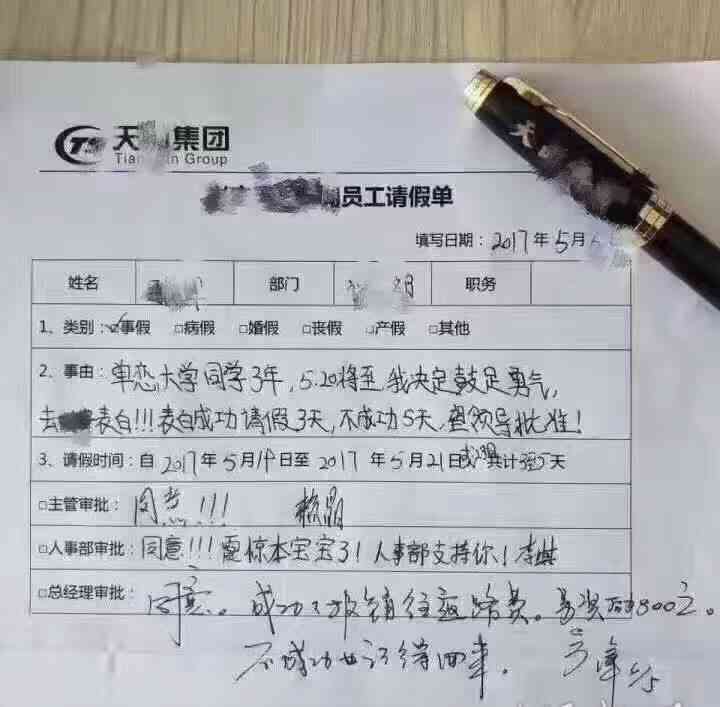 天 集团
Tian Group
员工请假单
填写日期：2017年5月
姓名 部门 职务
1、类别：☑事假 □病假 □婚假 □丧假 □产假 □其他
2、事由：单恋大学同学3年，5.20将至，我决定鼓足勇气，
去 表白!!!表白成功请假3天，不成功5天，望领导批准！
3、请假时间：自2017年5月19日至2017年5月21日或23日共计3或5天
□主管审批：同意!!!
□人事部审批：同意!!!震惊本宝宝了！人事部支持你！李
□总经理审批：同意。成功了报销往返路费。 800元。
不成功也记得回来。